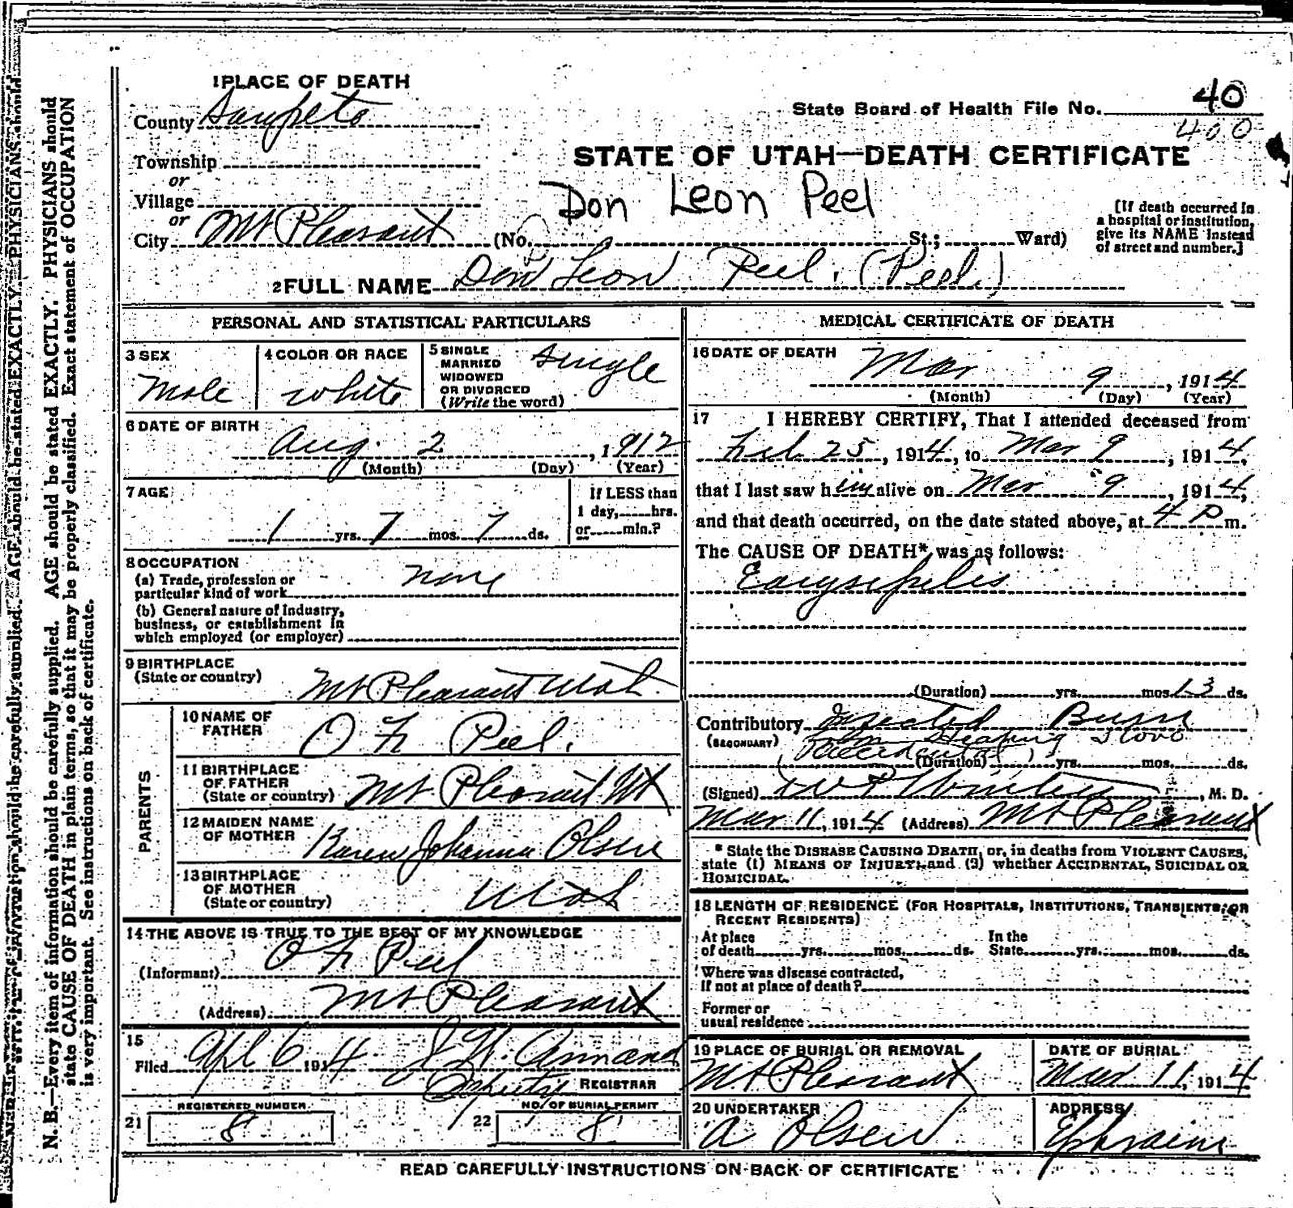 1 PLACE OF DEATH
County Sanpete
State Board of Health File No. 40
400
Township
or
Village
or
City Mt Pleasant
STATE OF UTAH—DEATH CERTIFICATE
Don Leon Peel
(No. St.; Ward)
[If death occurred in
a hospital or institution,
give its NAME instead
of street and number.]
2 FULL NAME Don Leon Peel. (Peel.)
PERSONAL AND STATISTICAL PARTICULARS
3 SEX
Male
4 COLOR OR RACE
white
5 SINGLE
MARRIED
WIDOWED
OR DIVORCED
(Write the word)
Single
6 DATE OF BIRTH
Aug. 2, 1912
(Month) (Day) (Year)
7 AGE
1 yrs. 7 mos. 7 ds.
If LESS than
1 day, hrs.
or min.?
8 OCCUPATION
(a) Trade, profession or
particular kind of work none
(b) General nature of industry,
business, or establishment in
which employed (or employer)
9 BIRTHPLACE
(State or country) Mt Pleasant Utah
PARENTS
10 NAME OF
FATHER O F Peel.
11 BIRTHPLACE
OF FATHER
(State or country) Mt Pleasant Ut
12 MAIDEN NAME
OF MOTHER Karen Johanna Olsen
13 BIRTHPLACE
OF MOTHER
(State or country) Utah
14 THE ABOVE IS TRUE TO THE BEST OF MY KNOWLEDGE
(Informant) O F Peel
(Address) Mt Pleasant
15
Filed Apl 6 1914
Deputy REGISTRAR
21 REGISTERED NUMBER
8
22 NO. OF BURIAL PERMIT
8
MEDICAL CERTIFICATE OF DEATH
16 DATE OF DEATH
Mar 9, 1914
(Month) (Day) (Year)
17 I HEREBY CERTIFY, That I attended deceased from
Feb 25, 1914, to Mar 9, 1914,
that I last saw him alive on Mar 9, 1914,
and that death occurred, on the date stated above, at 4 P m.
The CAUSE OF DEATH* was as follows:
Earysipelis
(Duration) yrs. mos. 13 ds.
Contributory Infected Burn
(SECONDARY) from Heating Stove
(Accidental)
(Duration) yrs. mos. ds.
(Signed) , M. D.
Mar 11, 1914 (Address) Mt Pleasant
* State the DISEASE CAUSING DEATH, or, in deaths from VIOLENT CAUSES,
state (1) MEANS OF INJURY; and (2) whether ACCIDENTAL, SUICIDAL OR
HOMICIDAL.
18 LENGTH OF RESIDENCE (FOR HOSPITALS, INSTITUTIONS, TRANSIENTS, OR
RECENT RESIDENTS)
At place
of death yrs. mos. ds.
In the
State yrs. mos. ds.
Where was disease contracted,
If not at place of death?
Former or
usual residence
19 PLACE OF BURIAL OR REMOVAL
Mt Pleasant
DATE OF BURIAL
Mar 11, 1914
20 UNDERTAKER
A Olsen
ADDRESS
Ephraim
READ CAREFULLY INSTRUCTIONS ON BACK OF CERTIFICATE
N. B.—Every item of information should be carefully supplied. AGE should be stated EXACTLY. PHYSICIANS should
state CAUSE OF DEATH in plain terms, so that it may be properly classified. Exact statement of OCCUPATION
is very important. See instructions on back of certificate.